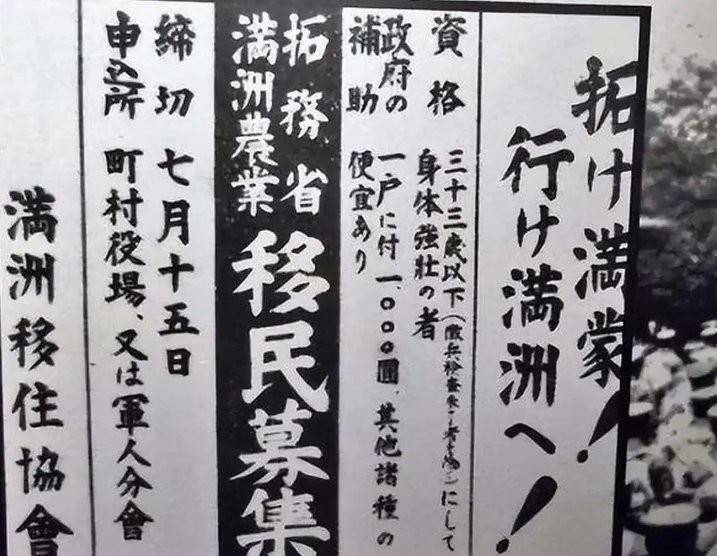 拓け満蒙!
行け満洲へ!
資格 三十三歳以下(徴兵検査未 者 )にして
身体強壮の者
政府の
補助 一戸に付一、〇〇〇圓、其他諸種の
便宜あり
拓務省
満洲農業
移民募集
締切 七月十五日
申込所 町村役場、又は軍人分會
満洲移住協會